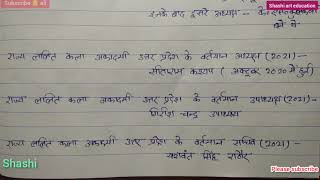 Subscribe
all
Shashi art education
इनके बाद दूसरे अध्यक्ष -
राज्य ललित कला अकादमी उत्तर प्रदेश के वर्तमान अध्यक्ष (2021) -
सीताराम कश्यप ( अक्टूबर 2020 में हुये
राज्य ललित कला अकादमी उत्तर प्रदेश के वर्तमान उपाध्यक्ष (2021) -
गिरीश चन्द्र उपाध्याय
राज्य ललित कला अकादमी उत्तर प्रदेश के वर्तमान सचिव (2021) -
यशवंत सिंह राठौर
Shashi
Please subscribe